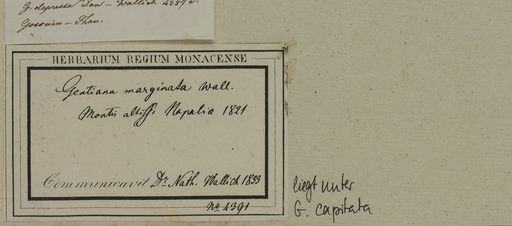 G. depressa Don – Wallich 4389 .
Gossain – Than.
HERBARIUM REGIUM MONACENSE
Gentiana marginata Wall.
Montis altiss. Napalio 1821
Communicavit Dr. Nath. Wallich 1833
No. 4391
liegt unter
G. capitata